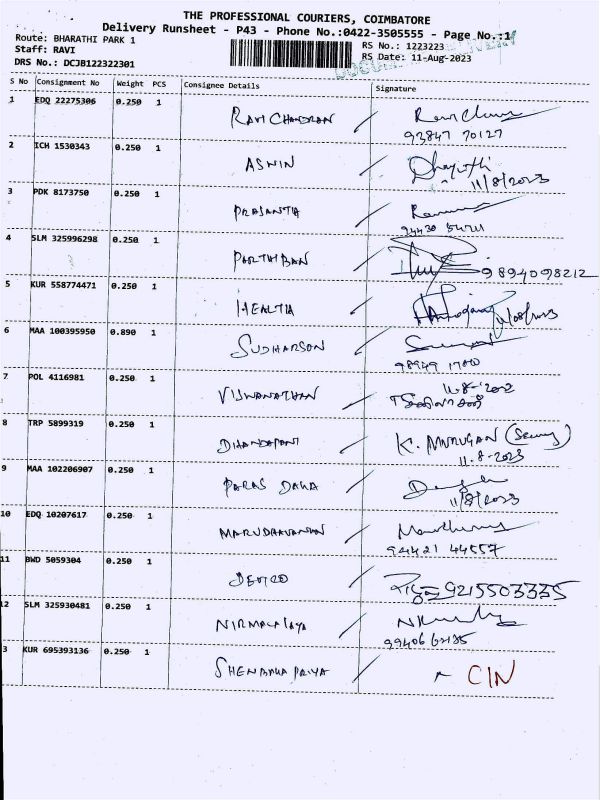 THE PROFESSIONAL COURIERS, COIMBATORE
Delivery Runsheet - P43 - Phone No.:0422-3505555 - Page No.:1
Route: BHARATHI PARK 1
RS No.: 1223223
Staff: RAVI
RS Date: 11-Aug-2023
DRS No.: DCJB122322301
S No Consignment No Weight PCS Consignee Details Signature
1 EDQ 22275306 0.250 1 RAVI CHANDRAN
93847 70127
2 ICH 1530343 0.250 1 ASWIN
11/8/2023
3 PDK 8173750 0.250 1 PRASANTH
94430
4 SLM 325996298 0.250 1 PARTHIBAN 9894098212
5 KUR 558774471 0.250 1 HEALTH
6 MAA 100395950 0.890 1 SUDHARSON
98949
7 POL 4116981 0.250 1 VISWANATHAN
8 TRP 5899319 0.250 1 DHANDAPANI K. MURUGAN
11.8.2023
9 MAA 102206907 0.250 1 PARAS DAGA
11/8/2023
10 EDQ 10207617 0.250 1
94421 44557
11 BWD 5059304 0.250 1 9215503335
12 SLM 325930481 0.250 1 NIRMALALAYA
3 KUR 695393136 0.250 1 SHENBAGA PRIYA CIN